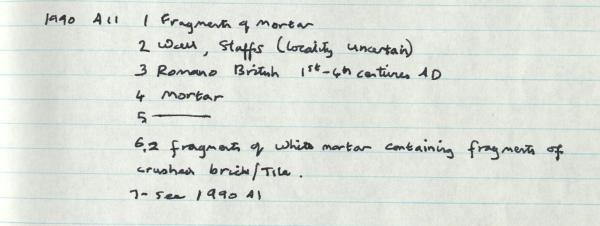 1990 A11 1 Fragments of mortar
2 Wall, Staffs (locality uncertain)
3 Romano British 1st-4th centuries AD
4 Mortar
5 ———
6, 2 fragments of white mortar containing fragments of
crushed brick/Tile.
7- See 1990 A1